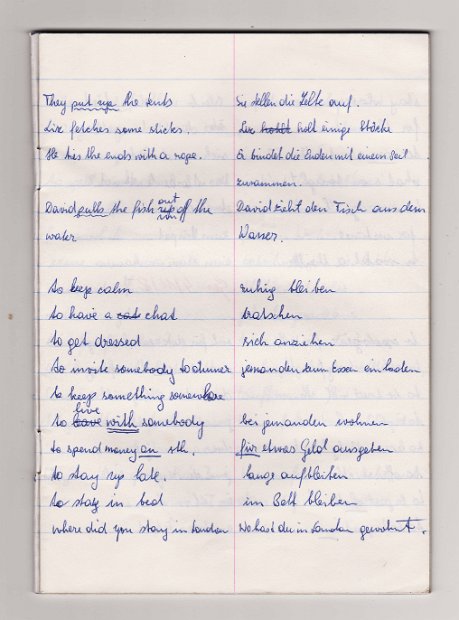 They put up the tents Sie stellen die Zelte auf.
Liz fetches some sticks. Liz holt einige Stöcke
He ties the ends with a rope. Er bindet die Enden mit einem Seil
zusammen.
David pulls the fish out of the David zieht den Fisch aus dem
water Wasser.
to keep calm ruhig bleiben
to have a chat tratschen
to get dressed sich anziehen
to invite somebody to dinner jemanden zum Essen einladen
to keep something somewhere
to live with somebody bei jemanden wohnen
to spend money on sth. für etwas Geld ausgeben
to stay up late. lange aufbleiben
to stay in bed im Bett bleiben
where did you stay in London Wo hast du in London gewohnt.